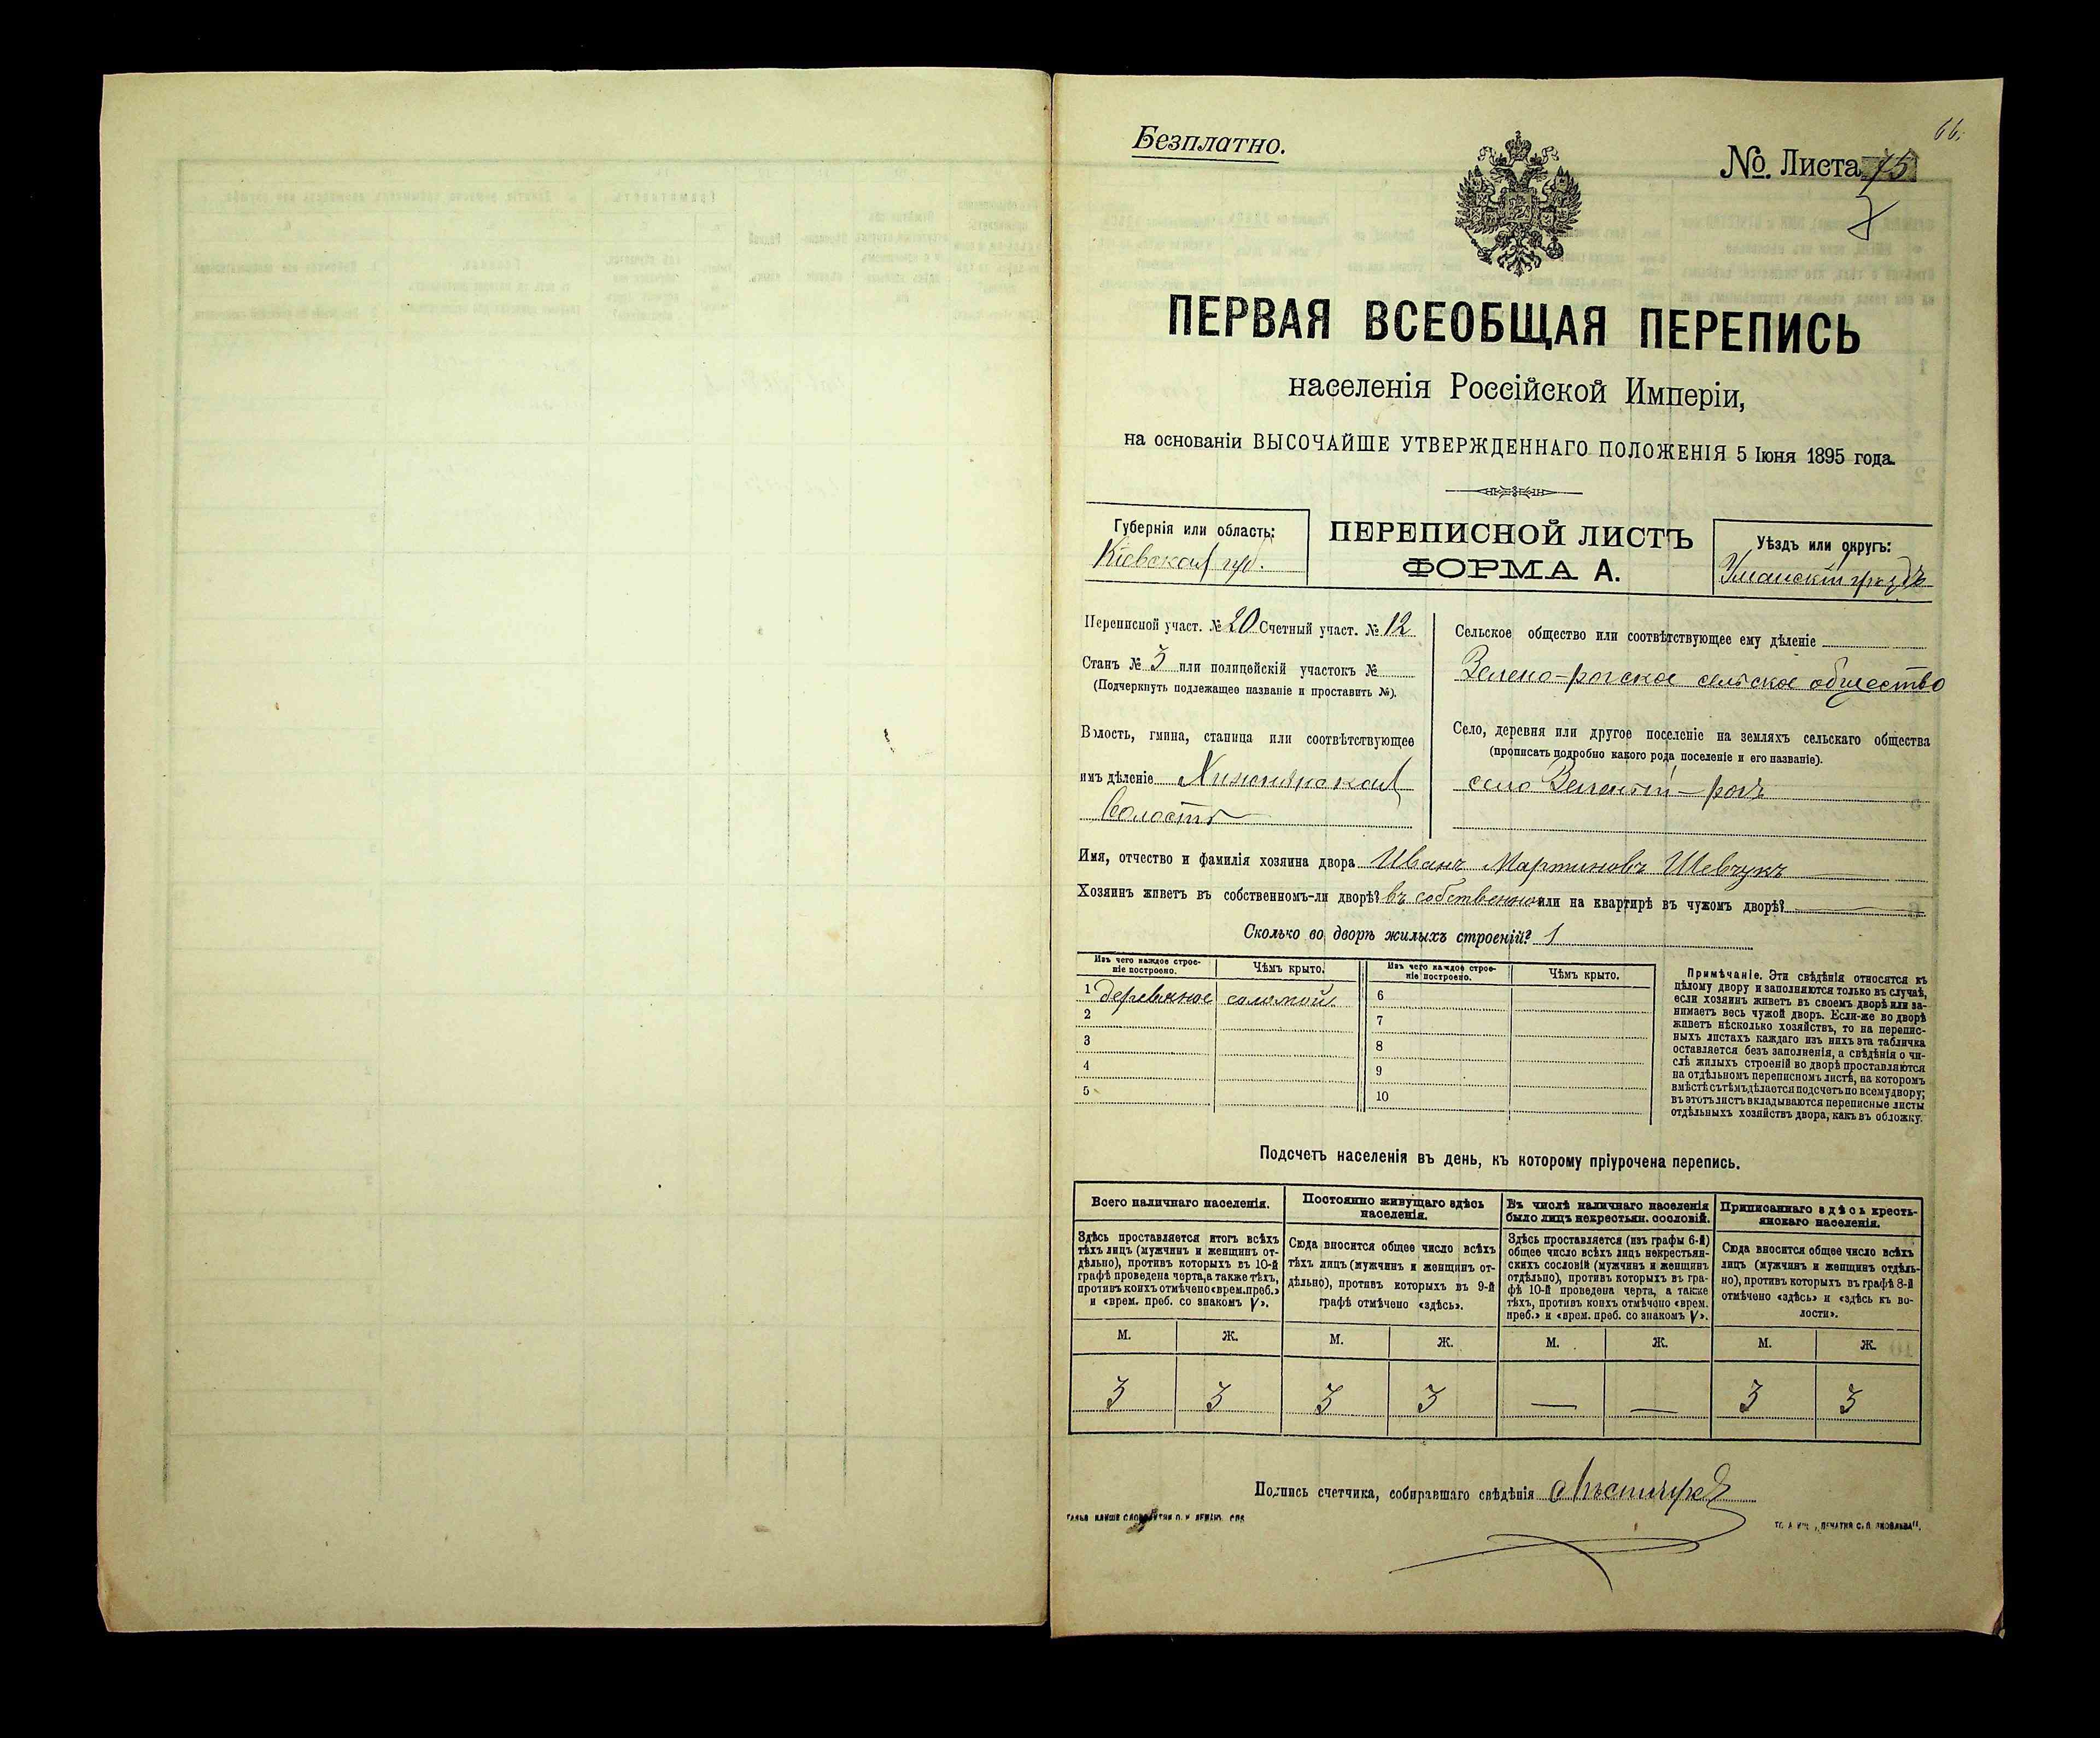 66.
Безплатно.
№. Листа 75
ПЕРВАЯ ВСЕОБЩАЯ ПЕРЕПИСЬ
населенія Россійской Имперіи,
на основаніи ВЫСОЧАЙШЕ УТВЕРЖДЕННАГО ПОЛОЖЕНІЯ 5 Іюня 1895 года.
Губернія или область:
Кіевская губ.
ПЕРЕПИСНОЙ ЛИСТЪ
ФОРМА А.
Уѣздъ или округъ:
Уманскій уѣздъ
Переписной участ. № 20 Счетный участ. № 12
Станъ № 3 или полицейскій участокъ №
(Подчеркнуть подлежащее названіе и проставить №).
Волость, гмина, станица или соотвѣтствующее
имъ дѣленіе
волость
Сельское общество или соотвѣтствующее ему дѣленіе
Зелено-рогское сельское общество
Село, деревня или другое поселеніе на земляхъ сельскаго общества
(прописать подробно какого рода поселеніе и его названіе).
село Зеленый-рогъ
Имя, отчество и фамилія хозяина двора Иванъ Мартиновъ Шевчукъ
Хозяинъ живетъ въ собственномъ-ли дворѣ? въ собственно или на квартирѣ въ чужомъ дворѣ?
Сколько во дворѣ жилыхъ строеній? 1
Изъ чего каждое строе-
ніе построено.
Чѣмъ крыто.
Изъ чего каждое строе-
ніе построено.
Чѣмъ крыто.
1 деревяное соломой
2
3
4
5
6
7
8
9
10
Примѣчаніе. Эти свѣдѣнія относятся къ
цѣлому двору и заполняются только въ случаѣ,
если хозяинъ живетъ въ своемъ дворѣ или за-
нимаетъ весь чужой дворъ. Если-же во дворѣ
живетъ нѣсколько хозяйствъ, то на перепис-
ныхъ листахъ каждаго изъ нихъ эта табличка
оставляется безъ заполненія, а свѣдѣнія о чи-
слѣ жилыхъ строеній во дворѣ проставляются
на отдѣльномъ переписномъ листѣ, на которомъ
вмѣстѣ съ тѣмъ дѣлается подсчетъ по всему двору;
въ этотъ листъ вкладываются переписные листы
отдѣльныхъ хозяйствъ двора, какъ въ обложку.
Подсчетъ населенія въ день, къ которому пріурочена перепись.
Всего наличнаго населенія.
Здѣсь проставляется итогъ всѣхъ
тѣхъ лицъ (мужчинъ и женщинъ от-
дѣльно), противъ которыхъ въ 10-й
графѣ проведена черта, а также тѣхъ,
противъ коихъ отмѣчено «врем. преб.»
и «врем. преб. со знакомъ V».
Постоянно живущаго здѣсь
населенія.
Сюда вносится общее число всѣхъ
тѣхъ лицъ (мужчинъ и женщинъ от-
дѣльно), противъ которыхъ въ 9-й
графѣ отмѣчено «здѣсь».
Въ числѣ наличнаго населенія
было лицъ некрестьян. сословій.
Здѣсь проставляется (изъ графы 6-й)
общее число всѣхъ лицъ некрестьян-
скихъ сословій (мужчинъ и женщинъ
отдѣльно), противъ которыхъ въ гра-
фѣ 10-й проведена черта, а также
тѣхъ, противъ коихъ отмѣчено «врем.
преб.» и «врем. преб. со знакомъ V».
Приписаннаго здѣсь кресть-
янскаго населенія.
Сюда вносится общее число всѣхъ
лицъ (мужчинъ и женщинъ отдѣль-
но), противъ которыхъ въ графѣ 8-й
отмѣчено «здѣсь» и «здѣсь къ во-
лости».
М. Ж. М. Ж. М. Ж. М. Ж.
3 3 3 3 — — 3 3
Подпись счетчика, собиравшаго свѣдѣнія